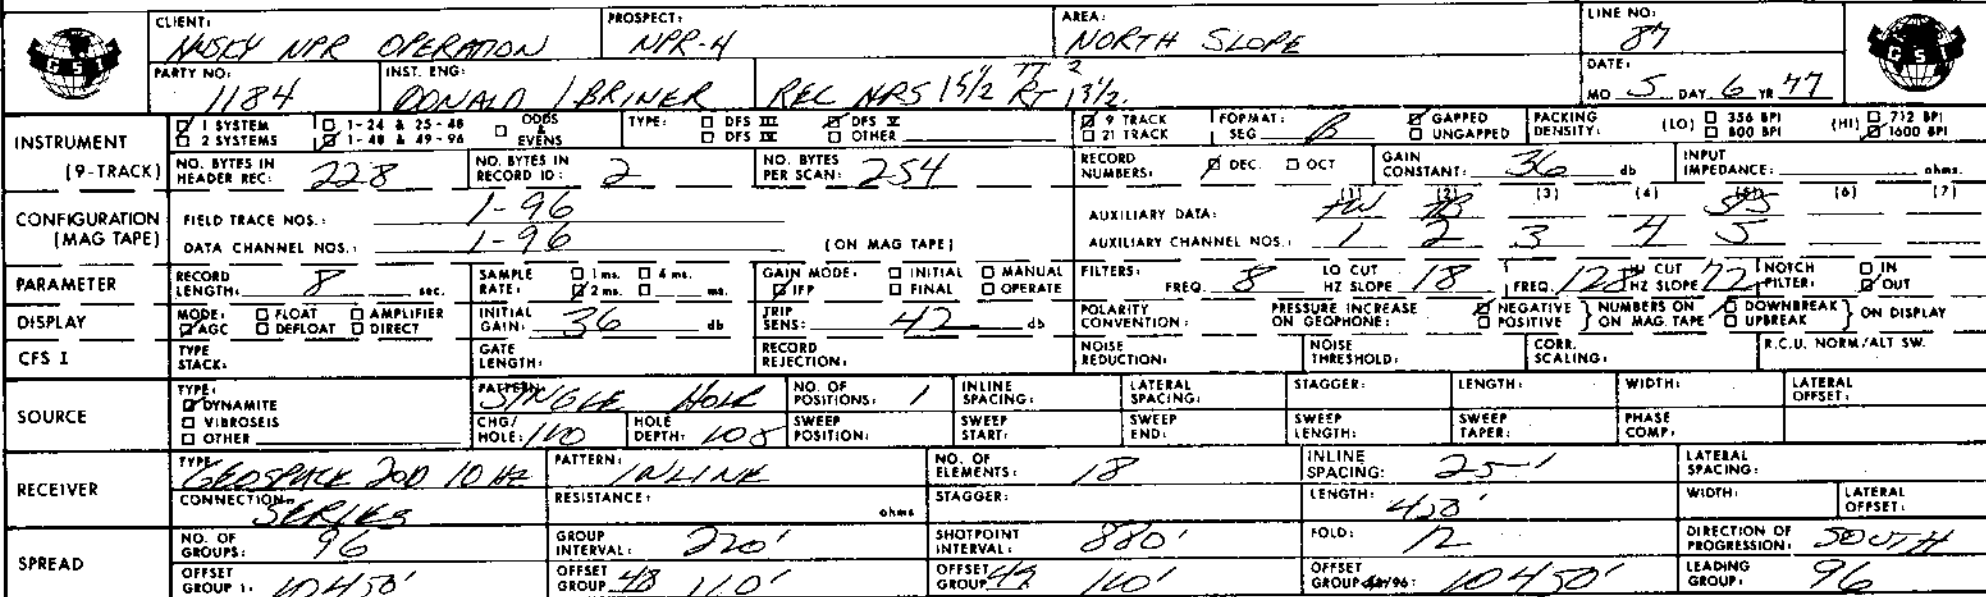 CLIENT: HUSKY NPR OPERATION PROSPECT: NPR-4 AREA: NORTH SLOPE LINE NO: 87
GSI PARTY NO: 1184 INST. ENG: DONALD / BRINER REC HRS 15 1/2 RT 13 1/2 DATE: MO 5 DAY 6 YR 77 GSI
INSTRUMENT 1 SYSTEM 1-24 & 25-48 ODDS & EVENS TYPE: DFS III DFS V 9 TRACK FORMAT: SEG B GAPPED PACKING DENSITY: (LO) 356 BPI (HI) 712 BPI
2 SYSTEMS 1-48 & 49-96 DFS IV OTHER 21 TRACK UNGAPPED 800 BPI 1600 BPI
(9-TRACK) NO. BYTES IN HEADER REC: 228 NO. BYTES IN RECORD ID: 2 NO. BYTES PER SCAN: 254 RECORD NUMBERS: DEC. OCT GAIN CONSTANT: 36 db INPUT IMPEDANCE: ohms.
(1) (2) (3) (4) (5) (6) (7)
CONFIGURATION (MAG TAPE) FIELD TRACE NOS.: 1-96 AUXILIARY DATA: TB
DATA CHANNEL NOS.: 1-96 (ON MAG TAPE) AUXILIARY CHANNEL NOS.: 1 2 3 4 5
PARAMETER RECORD LENGTH: 8 sec. SAMPLE RATE: 1 ms. 4 ms. 2 ms. ms. GAIN MODE: INITIAL MANUAL IFP FINAL OPERATE FILTERS: FREQ. 8 LO CUT HZ SLOPE 18 FREQ. 128 HI CUT HZ SLOPE 72 NOTCH FILTER: IN OUT
DISPLAY MODE: FLOAT AMPLIFIER AGC DEFLOAT DIRECT INITIAL GAIN: 36 db TRIP SENS: 42 db POLARITY CONVENTION: PRESSURE INCREASE ON GEOPHONE: NEGATIVE POSITIVE } NUMBERS ON ON MAG. TAPE DOWNBREAK UPBREAK } ON DISPLAY
CFS I TYPE STACK: GATE LENGTH: RECORD REJECTION: NOISE REDUCTION: NOISE THRESHOLD: CORR. SCALING: R.C.U. NORM/ALT SW.
SOURCE TYPE: DYNAMITE VIBROSEIS OTHER PATTERN: SINGLE HOLE NO. OF POSITIONS: 1 INLINE SPACING: LATERAL SPACING: STAGGER: LENGTH: WIDTH: LATERAL OFFSET:
CHG/HOLE: HOLE DEPTH: 105 SWEEP POSITION: SWEEP START: SWEEP END: SWEEP LENGTH: SWEEP TAPER: PHASE COMP:
RECEIVER TYPE: GEOSPACE 20D 10 HZ PATTERN: INLINE NO. OF ELEMENTS: 18 INLINE SPACING: 25' LATERAL SPACING:
CONNECTION: SERIES RESISTANCE: ohms STAGGER: LENGTH: WIDTH: LATERAL OFFSET:
SPREAD NO. OF GROUPS: 96 GROUP INTERVAL: 220' SHOTPOINT INTERVAL: 880' FOLD: 12 DIRECTION OF PROGRESSION: SOUTH
OFFSET GROUP 1: 10450' OFFSET GROUP 48 110' OFFSET GROUP 49 110' OFFSET GROUP 48/96: 10450' LEADING GROUP: 96